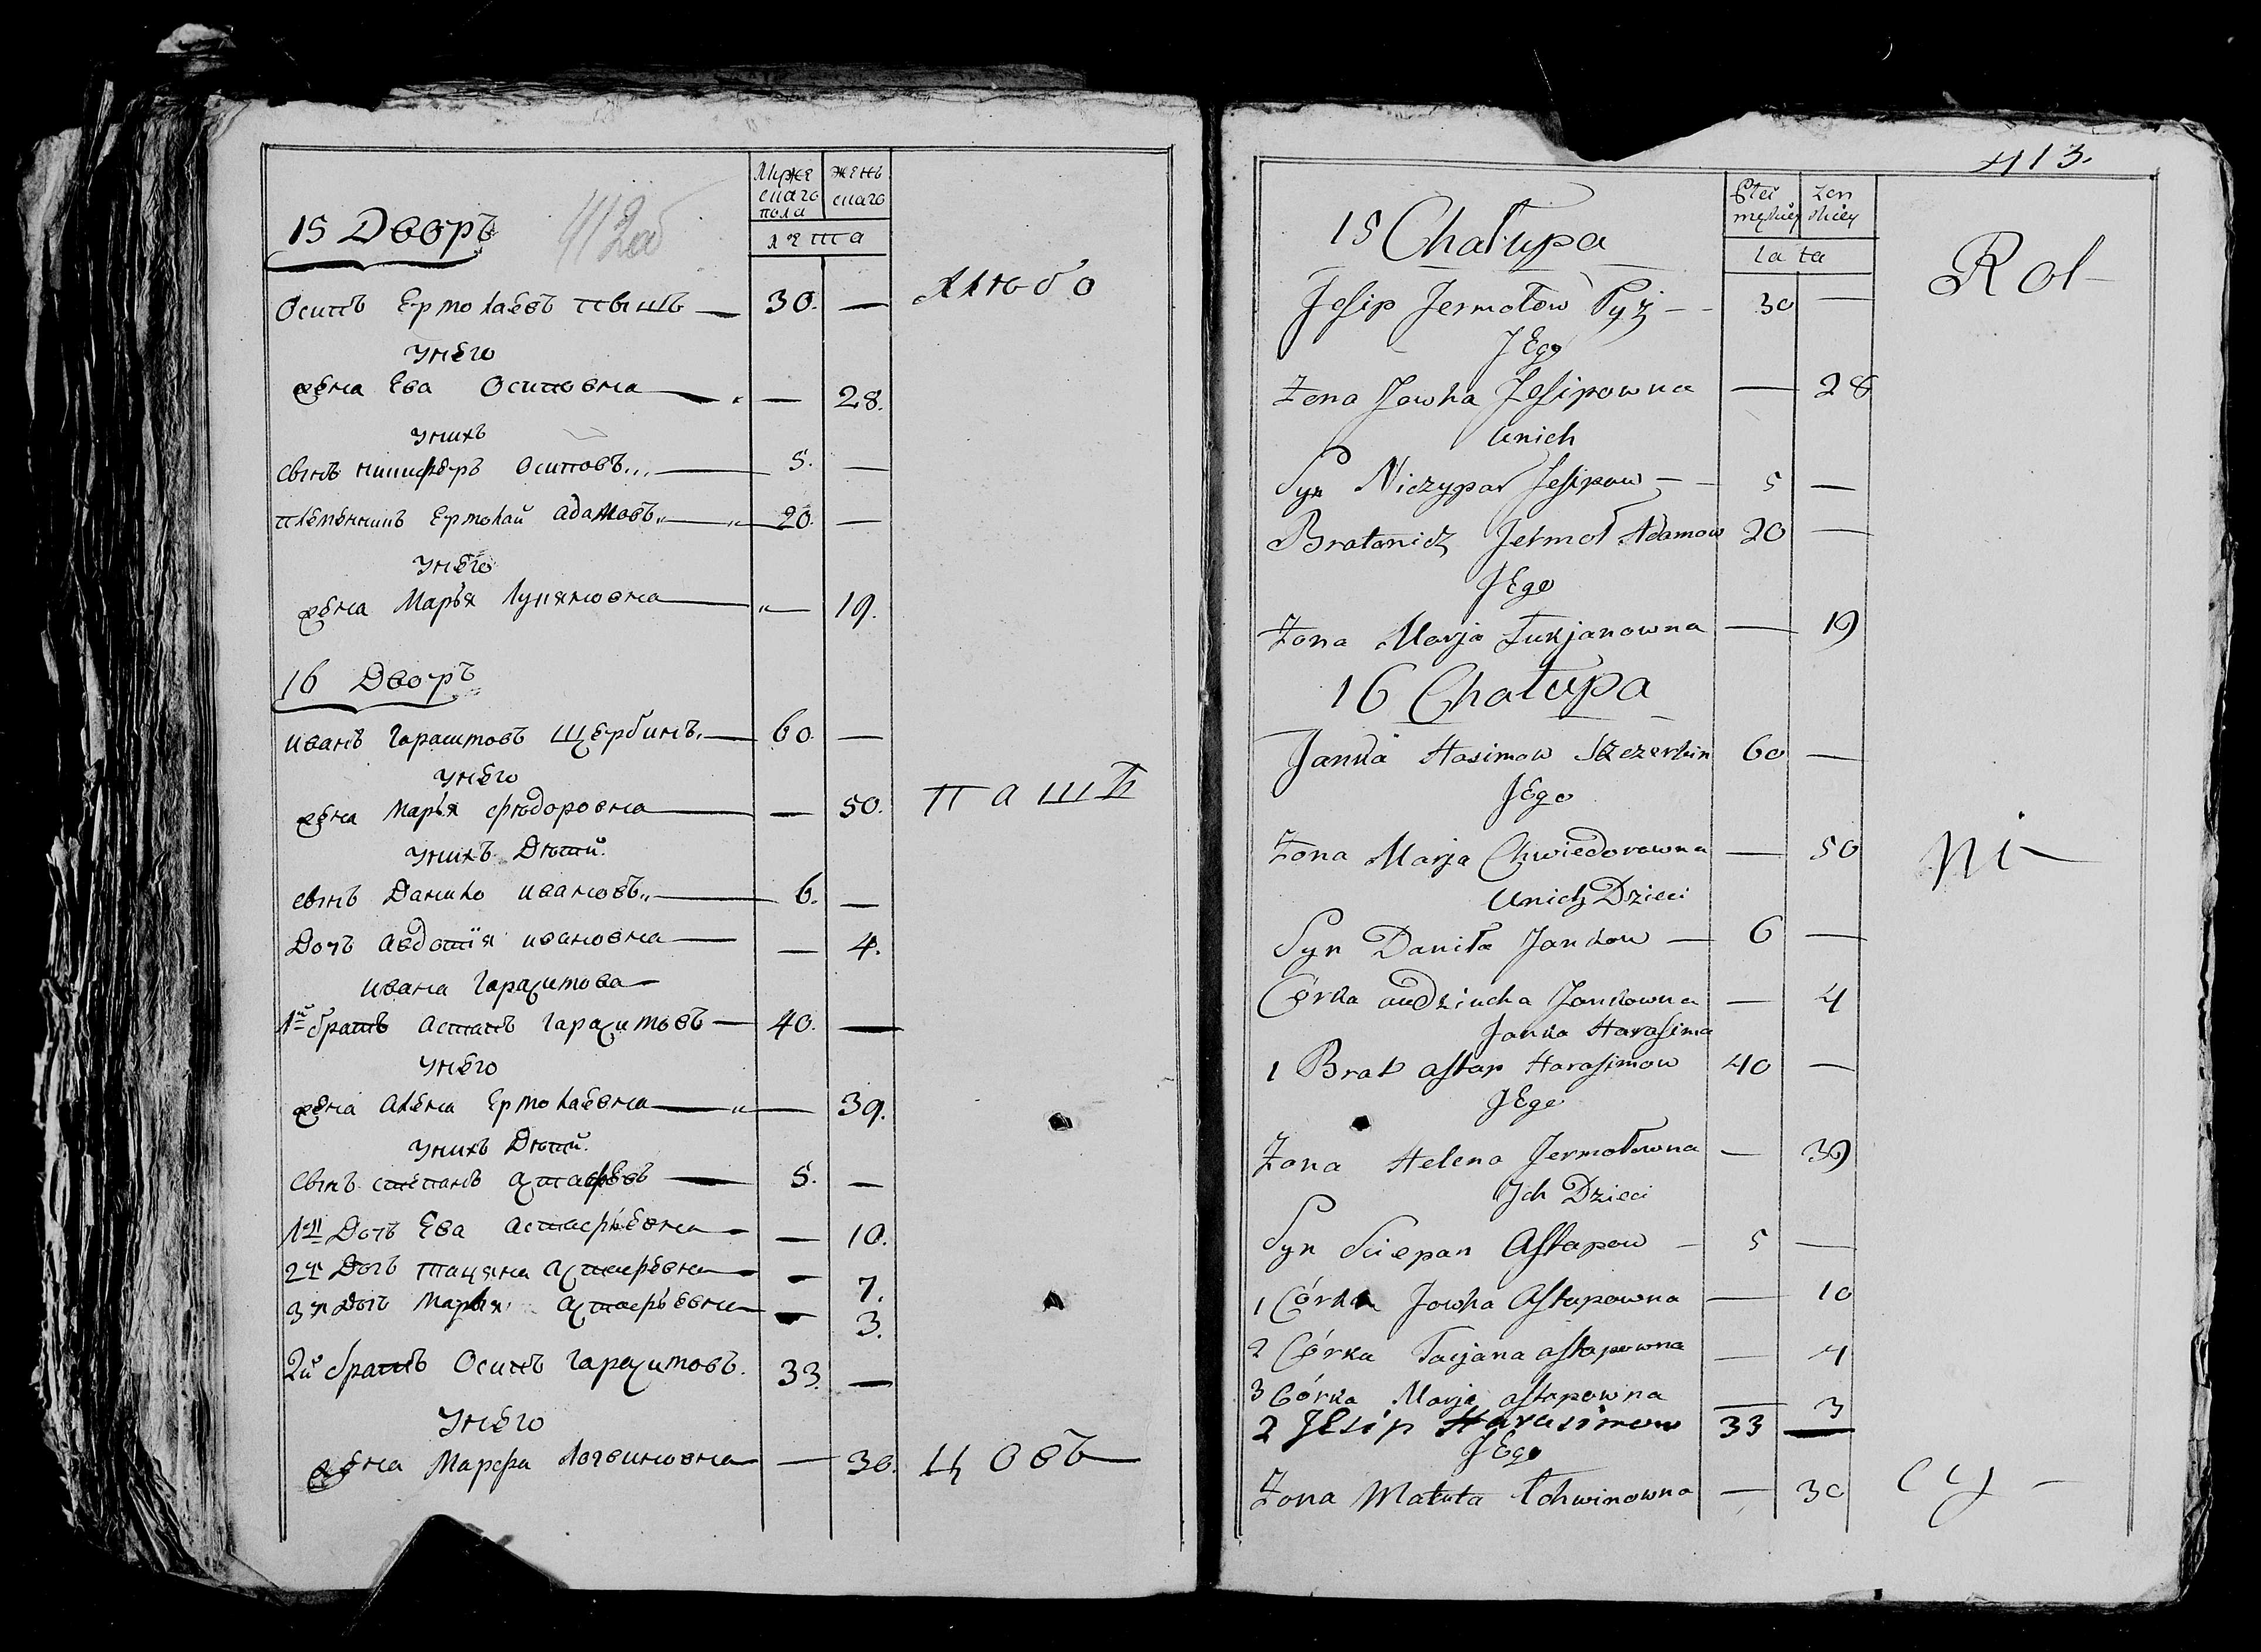 Муже
скаго
пола
жень
скаго
лета
412об
15 Дворъ
Осипъ Ермолаевъ 30. —
Любо
Унего
жена Ева Осиповна — 28.
Унихъ
сынъ Ничиферъ Осиповъ 5. —
племенникъ Ермолай Адамовъ 20. —
Унего
жена Марья Лукяновна — 19.
16 Дворъ
иванъ Гарасимовъ Щербинъ 60. —
Унего
жена Марья Фюдоровна — 50.
пашъ
Унихъ Дѣтей
сынъ Данило ивановъ 6. —
Дочь Авдотїя ивановна — 4.
ивана Гарасимова
1й братъ Астапъ Гарасимовъ 40. —
Унего
жена Алена Ермолаевна — 39.
Унихъ Дѣтей
сынъ степанъ Астафьевъ 5. —
1я Дочь Ева Астафьевна — 10.
2я Дочь тацяна Астафьевна — 7.
3я Дочь Марья Астафьевна — 3.
2й братъ Осипъ Гарасимовъ. 33. —
Унего
жена Марфа Логвиновна — 30.
цовъ
413.
Płci
męskiey
żen
skiey
lata
15 Chałupa
Rol-
Jesip Jermołow Pyż 30 —
JEgo
Żona Jowka Jesipowna — 28
Unich
Syn Niczypar Jesipow 5 —
Bratanicz Jermoł Adamow 20 —
JEgo
Żona Marja Łukjanowna — 19
16 Chałupa
Janka Hasimow Szczerbin 60 —
JEgo
Żona Marja Chwiedorowna — 50
ni-
Unich Dzieci
Syn Daniła Jankow 6 —
Córka audziucha Jankowna — 4
Janka Harasima
1 Brat astap Harasimow 40 —
JEgo
Żona Helena Jermołowna — 39
Ich Dzieci
Syn Sciepan Astapow 5 —
1 Córka Jowka Astapowna — 10
2 Córka Tacjana astapowna — 4
3 Córka Marja astapowna — 3
2 JEsip Harasimow 33 —
JEgo
Żona Łohwinowna — 30
cy-